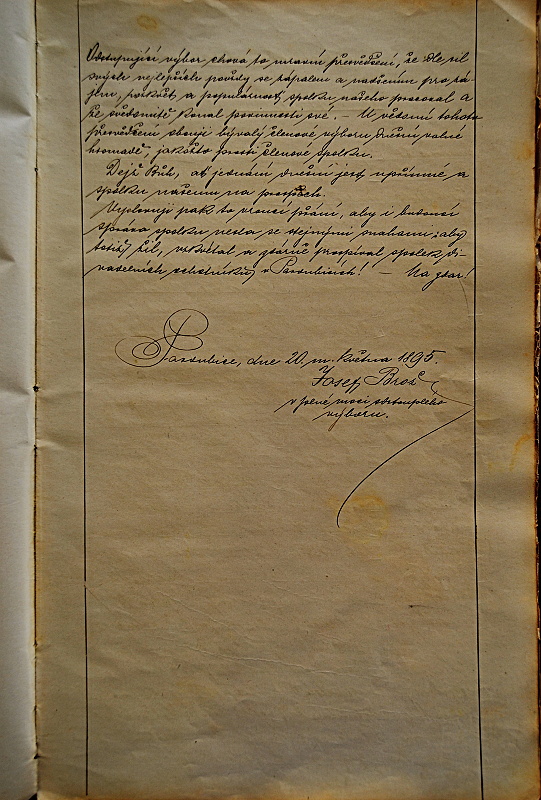 Odstupující výbor chová to mravní přesvědčení, že dle sil
svých nejlepších povždy se zápalem a nadšením pro zá-
jmy, rozkvět a popularnost spolku našeho pracoval a
že svědomitě konal povinnosti své. – U vědomí tohoto
přesvědčení zdravují bývalý členové výboru dnešní valné
hromadě, jakožto prostí členové spolku.
Dejž Bůh, ať jednání dnešní jest upřímné a
spolku našemu na prospěch.
Vyslovuji pak to vroucí přání, aby i budoucí
správa spolku nesla se stejnými snahami, aby
totiž žil, vzkvétal a zdárně prospíval spolek di-
vadelních ochotníků v Pardubicích! – Na zdar!
Pardubice, dne 20. m. května 1895.
Josef Brož
v plné moci odstouplého
výboru.